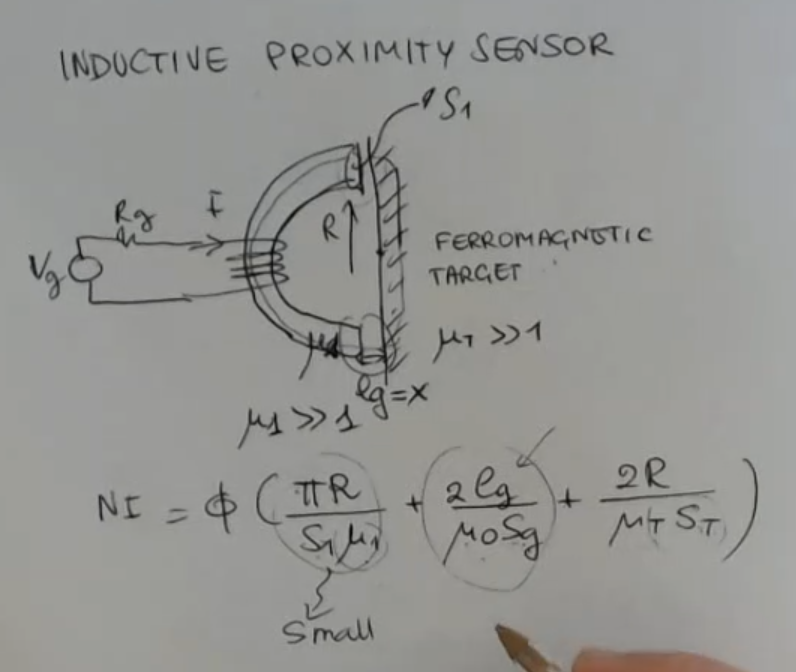 INDUCTIVE PROXIMITY SENSOR
S1
Rg
I
R
Vg
FERROMAGNETIC
TARGET
μT >> 1
μ1
lg = x
μ1 >> 1
NI = ϕ ( πR / S1 μ1 + 2 lg / μ0 Sg + 2R / μT ST )
Small